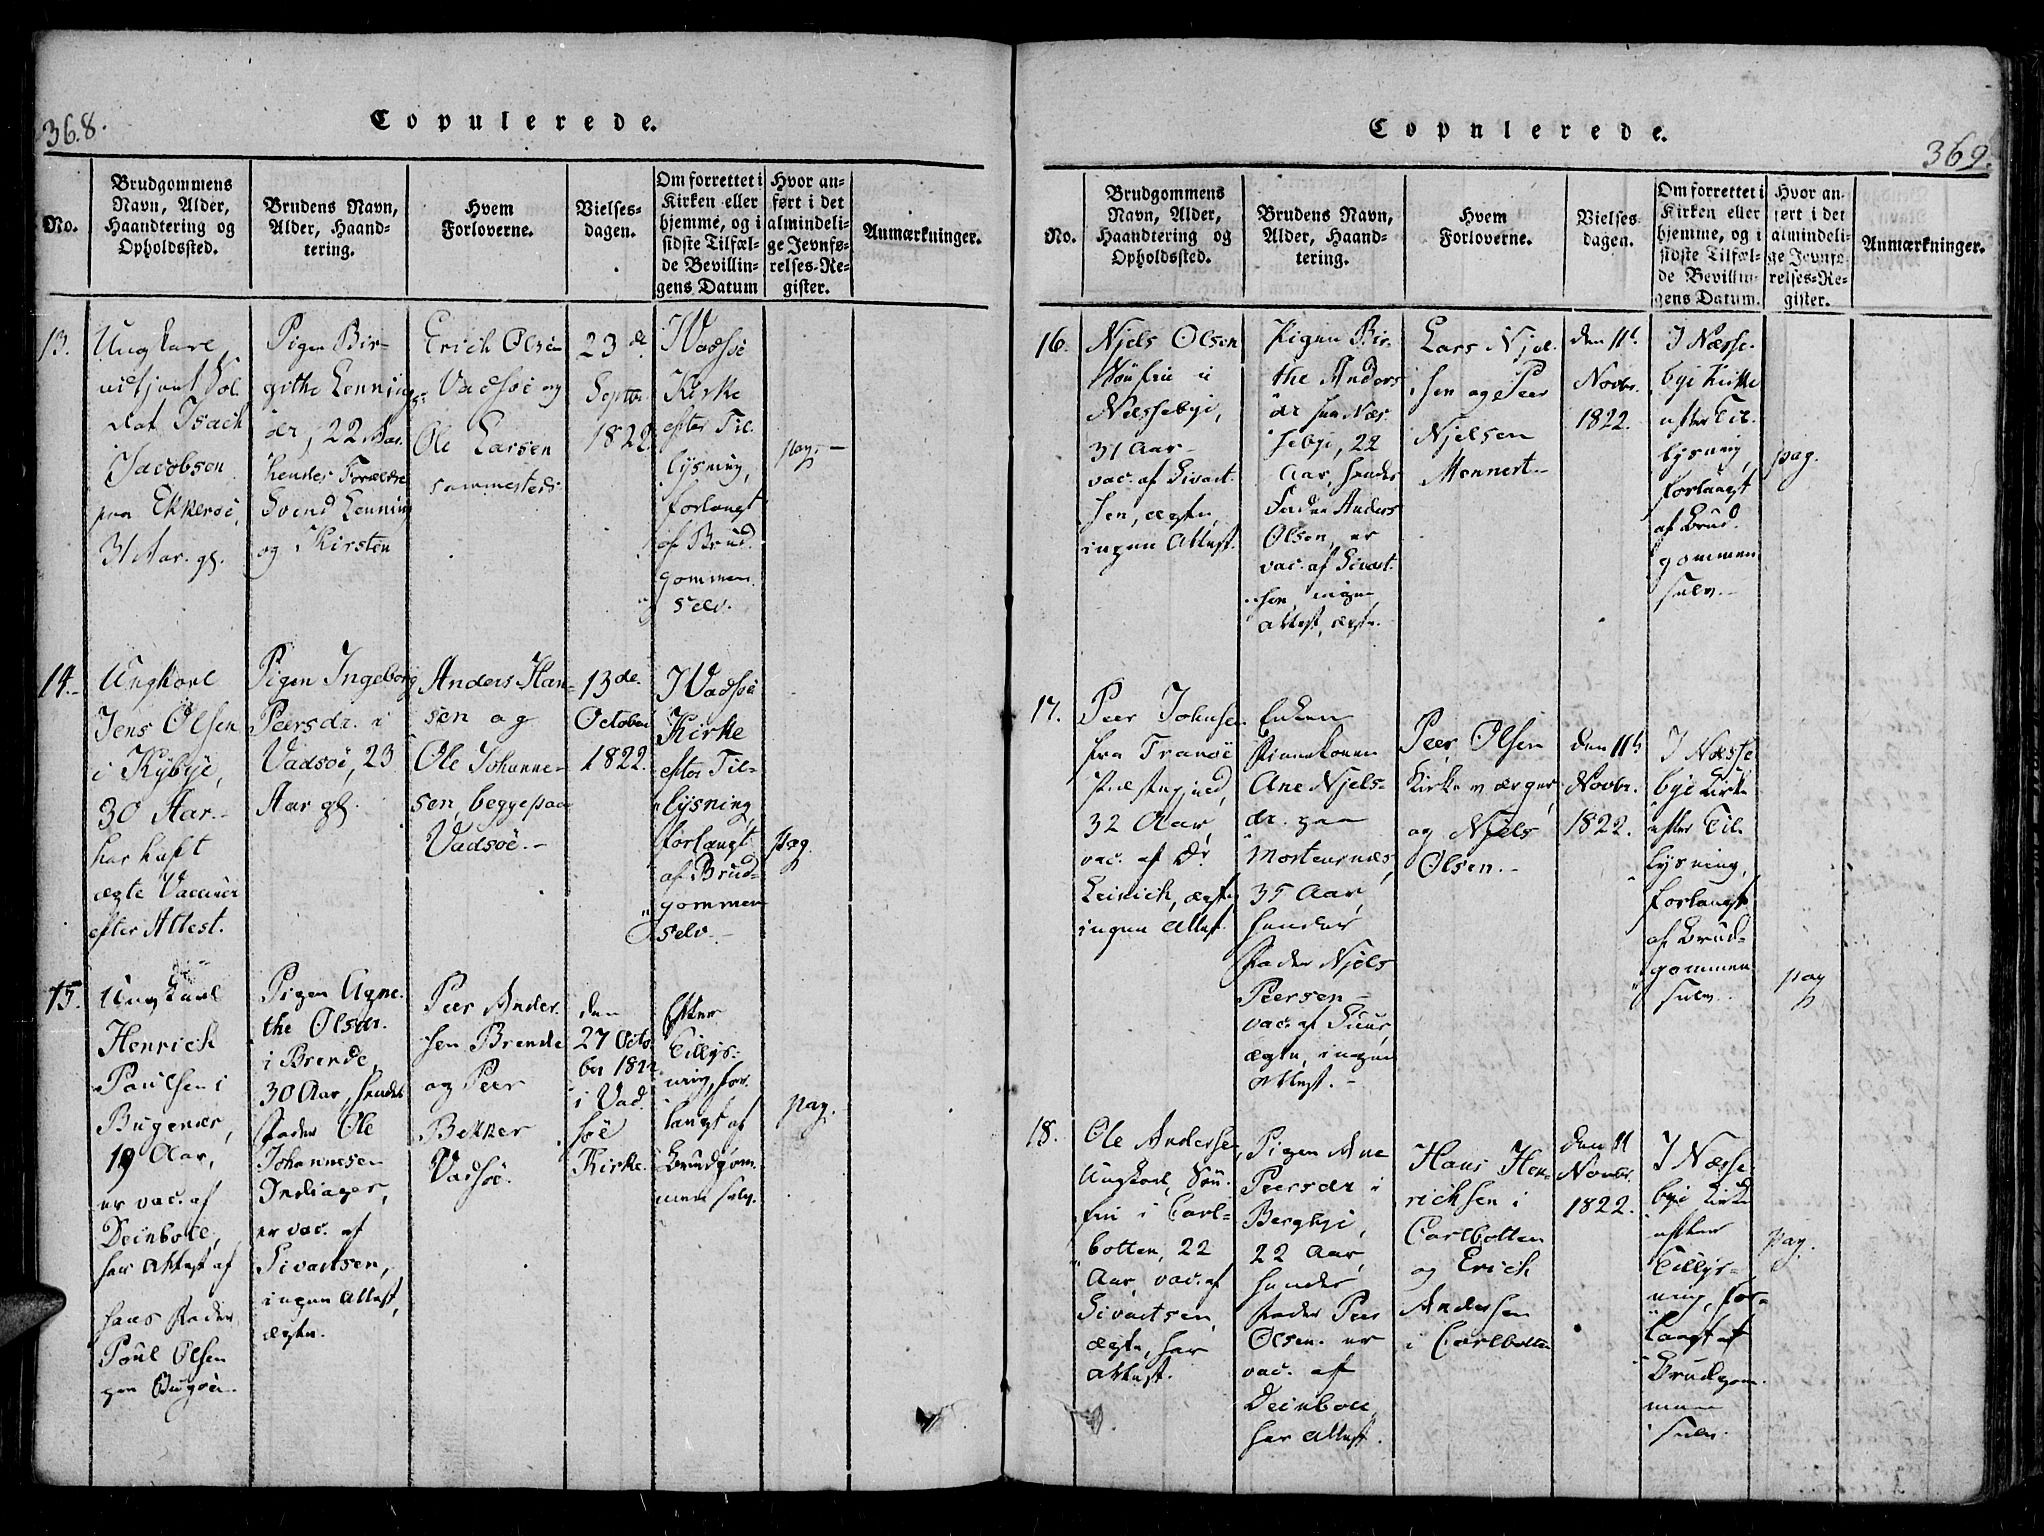 368.
Copulerede.
No.
Brudgommens
Navn, Alder,
Haandtering og
Opholdssted.
Brudens Navn,
Alder, Haand-
tering.
Hvem
Forloverne.
Vielses-
dagen.
Om forrettet i
Kirken eller
hjemme, og i
sidste Tilfæl-
de Bevillin-
gens Datum
Hvor an-
ført i det
almindeli-
ge Jevnfø-
relses-Re-
gister.
Anmærkninger.
13.
Ungkarl
udtjent Sol
dat Isach
Jacobsen
paa Ekkerøe,
31 Aar. gl.
Pigen Bir-
githe Henning
dr, 22 Aar.
hendes Forældre
Svend Henning
og Kirsten
Erich Olsen
Vadsøe og
Ole Larsen
sammesteds
23 de
Septbr
1822
I Vadsøe
Kirke
efter Til-
lysning,
forlangt
af Brud-
gommen
selv.
pag. —
14.
Ungkarl
Jens Olsen
i Kybye,
30 Aar.
har haft
ægte Vaccner
efter Attest.
Pigen Ingeborg
Peersdr. i
Vadsøe, 23
Aar gl.
Anders Han-
sen og
Ole Johanne-
sen, begge paa
Vadsøe. —
13 de.
October
1822.
I Vadsøe
Kirke
efter Til-
lysning,
forlangt
af Brud-
gommen
selv. —
pag.
15.
Ungkarl
Henrich
Paulsen i
Bugenæs,
19 Aar,
er vac. af
Deinboll,
har Attest af
hans Fader
Poul Olsen
paa Bugøen.
Pigen Agne-
the Olsdr.
i Brende,
30 Aar, hendes
Fader Ole
Johannesen
Indiager,
er vac. af
Sivartsen,
ingen Attest,
ægte.
Peer Ander
sen Brende
og Peer
Bekker
Vadsøe.
den
27 Octo-
ber 1822
i Vad-
søe
Kirke.
Efter
Tillys-
ning, for-
langt af
Brudgom-
men selv.
pag.
Copulerede.
369.
No.
Brudgommens
Navn, Alder,
Haandtering og
Opholdssted.
Brudens Navn,
Alder, Haand-
tering.
Hvem
Forloverne.
Vielses-
dagen.
Om forrettet i
Kirken eller
hjemme, og i
sidste Tilfæl-
de Bevillin-
gens Datum.
Hvor an-
ført i det
almindeli-
ge Jevnfø-
relses-Re-
gister.
Anmærkninger.
16.
Njels Olsen
Søufin i
Næssebye,
31 Aar
vac. af Sivart-
sen, ægte,
ingen Attest.
Pigen Bir-
the Anders
dr fra Næs-
sebye, 22
Aar, hendes
Fader Anders
Olsen, er
vac. af Sivart-
sen, ingen
Attest, ægte.
Lars Njel-
sen og Peer
Njelsen
Mennest
den 11te
Novbr.
1822.
I Næsse-
bye Kirke
efter Til-
lysning,
forlangt
af Brud-
gommen
selv. —
pag.
17.
Peer Johnsen
fra Tranøe
Præstegjeld,
32 Aar,
vac. af Dr
Leinich, ægte,
ingen Attest.
Enken
Finnekonen
Ane Njels-
dr. paa
Mortensnæs,
35 Aar,
hendes
Fader Njels
Peersen
vac. af Fuur,
ægte, ingen
Attest. —
Peer Olsen
Kirkeværger,
og Njels
Olsen. —
den 11te
Novbr.
1822.
I Næsse
bye Kirke
efter Til-
lysning,
forlangt
af Brud-
gommen
selv.
pag
18.
Ole Andersen,
Ungkarl, Søu-
fin i Carl-
botten, 22
Aar, vac. af
Sivartsen,
ægte, har
Attest.
Pigen Ane
Peersdr i
Bergbye,
22 Aar,
hendes
Fader Peer
Olsen. er
vac. af
Deinboll,
har Attest.
Hans Hen-
richsen i
Carlbotten
og Erich
Andersen
i Carlbotten
den 11
Novbr.
1822.
I Næsse-
bye Kirke
efter
Tillys-
ning, for-
langt af
Brudgom-
men
selv.
pag.